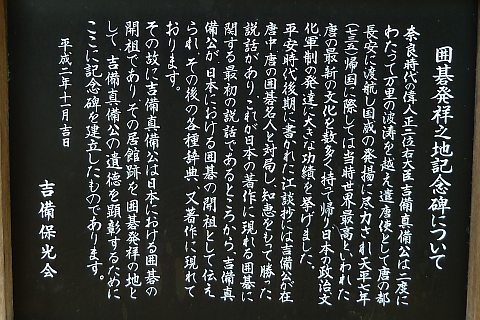 囲碁発祥之地記念碑について
奈良時代の偉人正二位右大臣吉備真備公は二度に
わたって万里の波涛を越え遣唐使として唐の都
長安に渡航し国威の発揚に尽力され天平七年
(七三五)帰国に際しては当時世界最高といわれた
唐の最新の文化を数多く持て帰り日本の政治文
化軍制の発達に大きな功績を挙げました。
平安時代後期に書かれた江談抄には吉備公が在
唐中唐の囲碁名人と対局し、知恵をもって勝った
説話があり、これが日本の著作に現れる囲碁に
関する最初の説話であるところから、吉備真
備公が日本における囲碁の開祖として伝え
られ、その後の各種辞典、又著作に現れて
おります。
その故に吉備真備公は日本における囲碁の
開祖であり、その居館跡を囲碁発祥の地と
して、吉備真備公の遺徳を顕彰するために
ここに記念碑を建立したものであります。
平成二年十一月吉日
吉備保光会